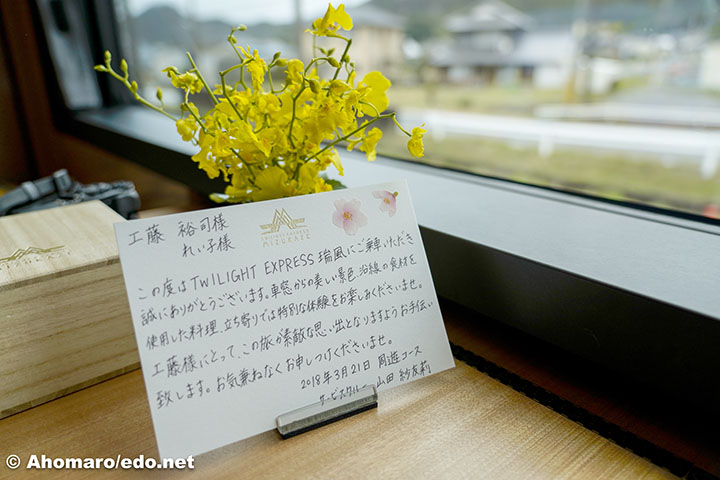 工藤 裕司様
れい子様
TWILIGHT EXPRESS
MIZUKAZE
この度はTWILIGHT EXPRESS 瑞風にご乗車いただき
誠にありがとうございます。車窓からの美しい景色、沿線の食材を
使用した料理、立ち寄りでは特別な体験をお楽しみくださいませ。
工藤様にとって、この旅が素敵な思い出となりますようお手伝い
致します。お気兼ねなくお申しつけくださいませ。
2018年3月21日 周遊コース
サービスクルー 山田 紗友莉
© Ahomaro/edo.net